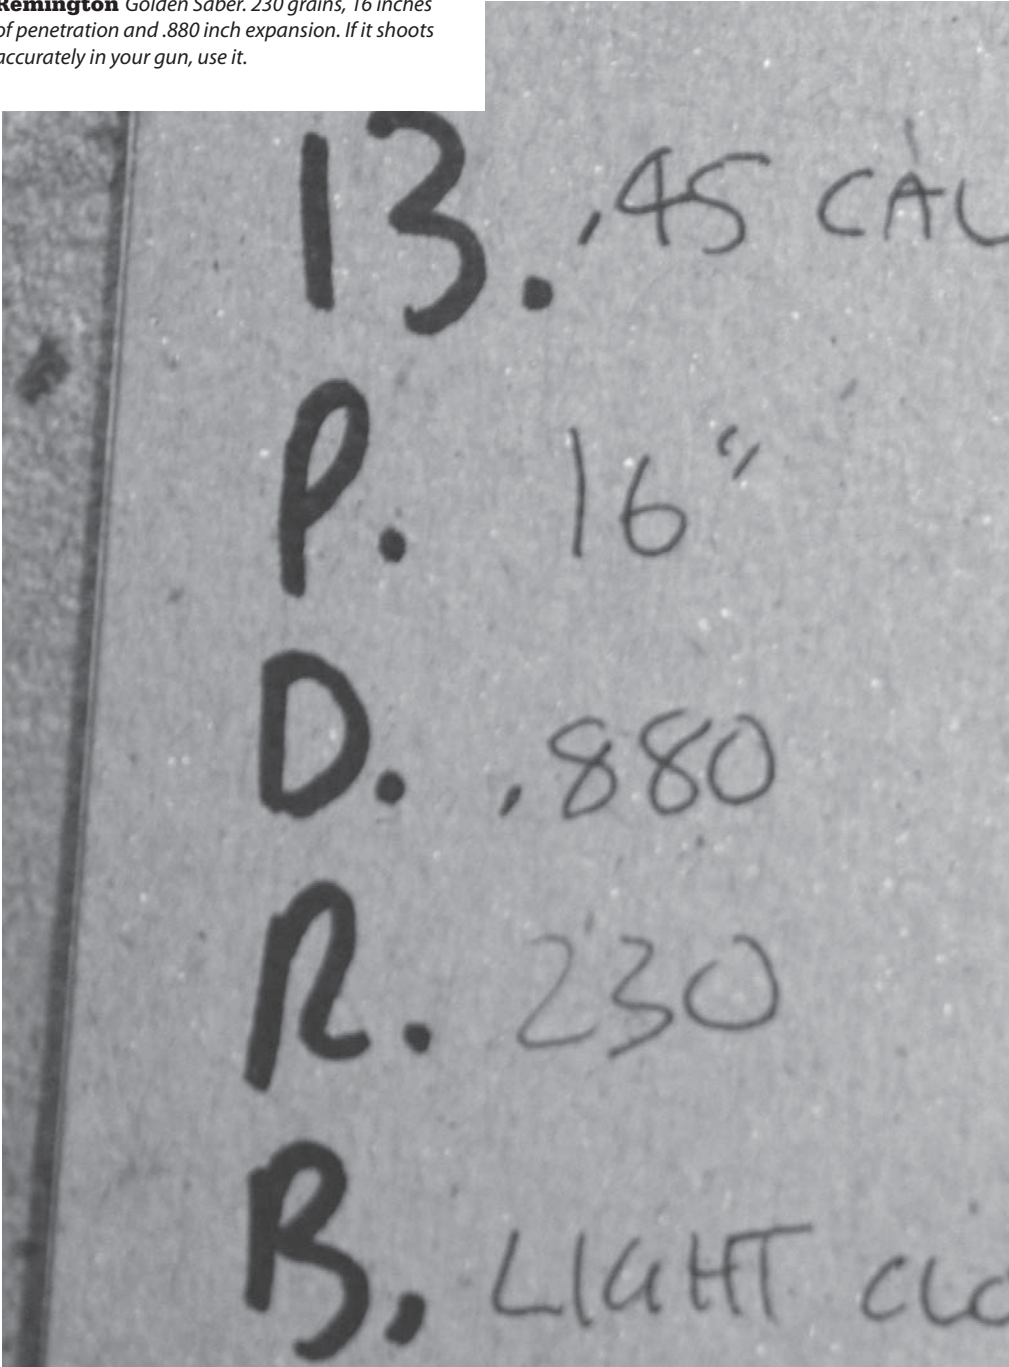 Remington Golden Saber. 230 grains, 16 inches
of penetration and .880 inch expansion. If it shoots
accurately in your gun, use it.
13. .45 CAL
P. 16"
D. .880
R. 230
B. LIGHT CLO